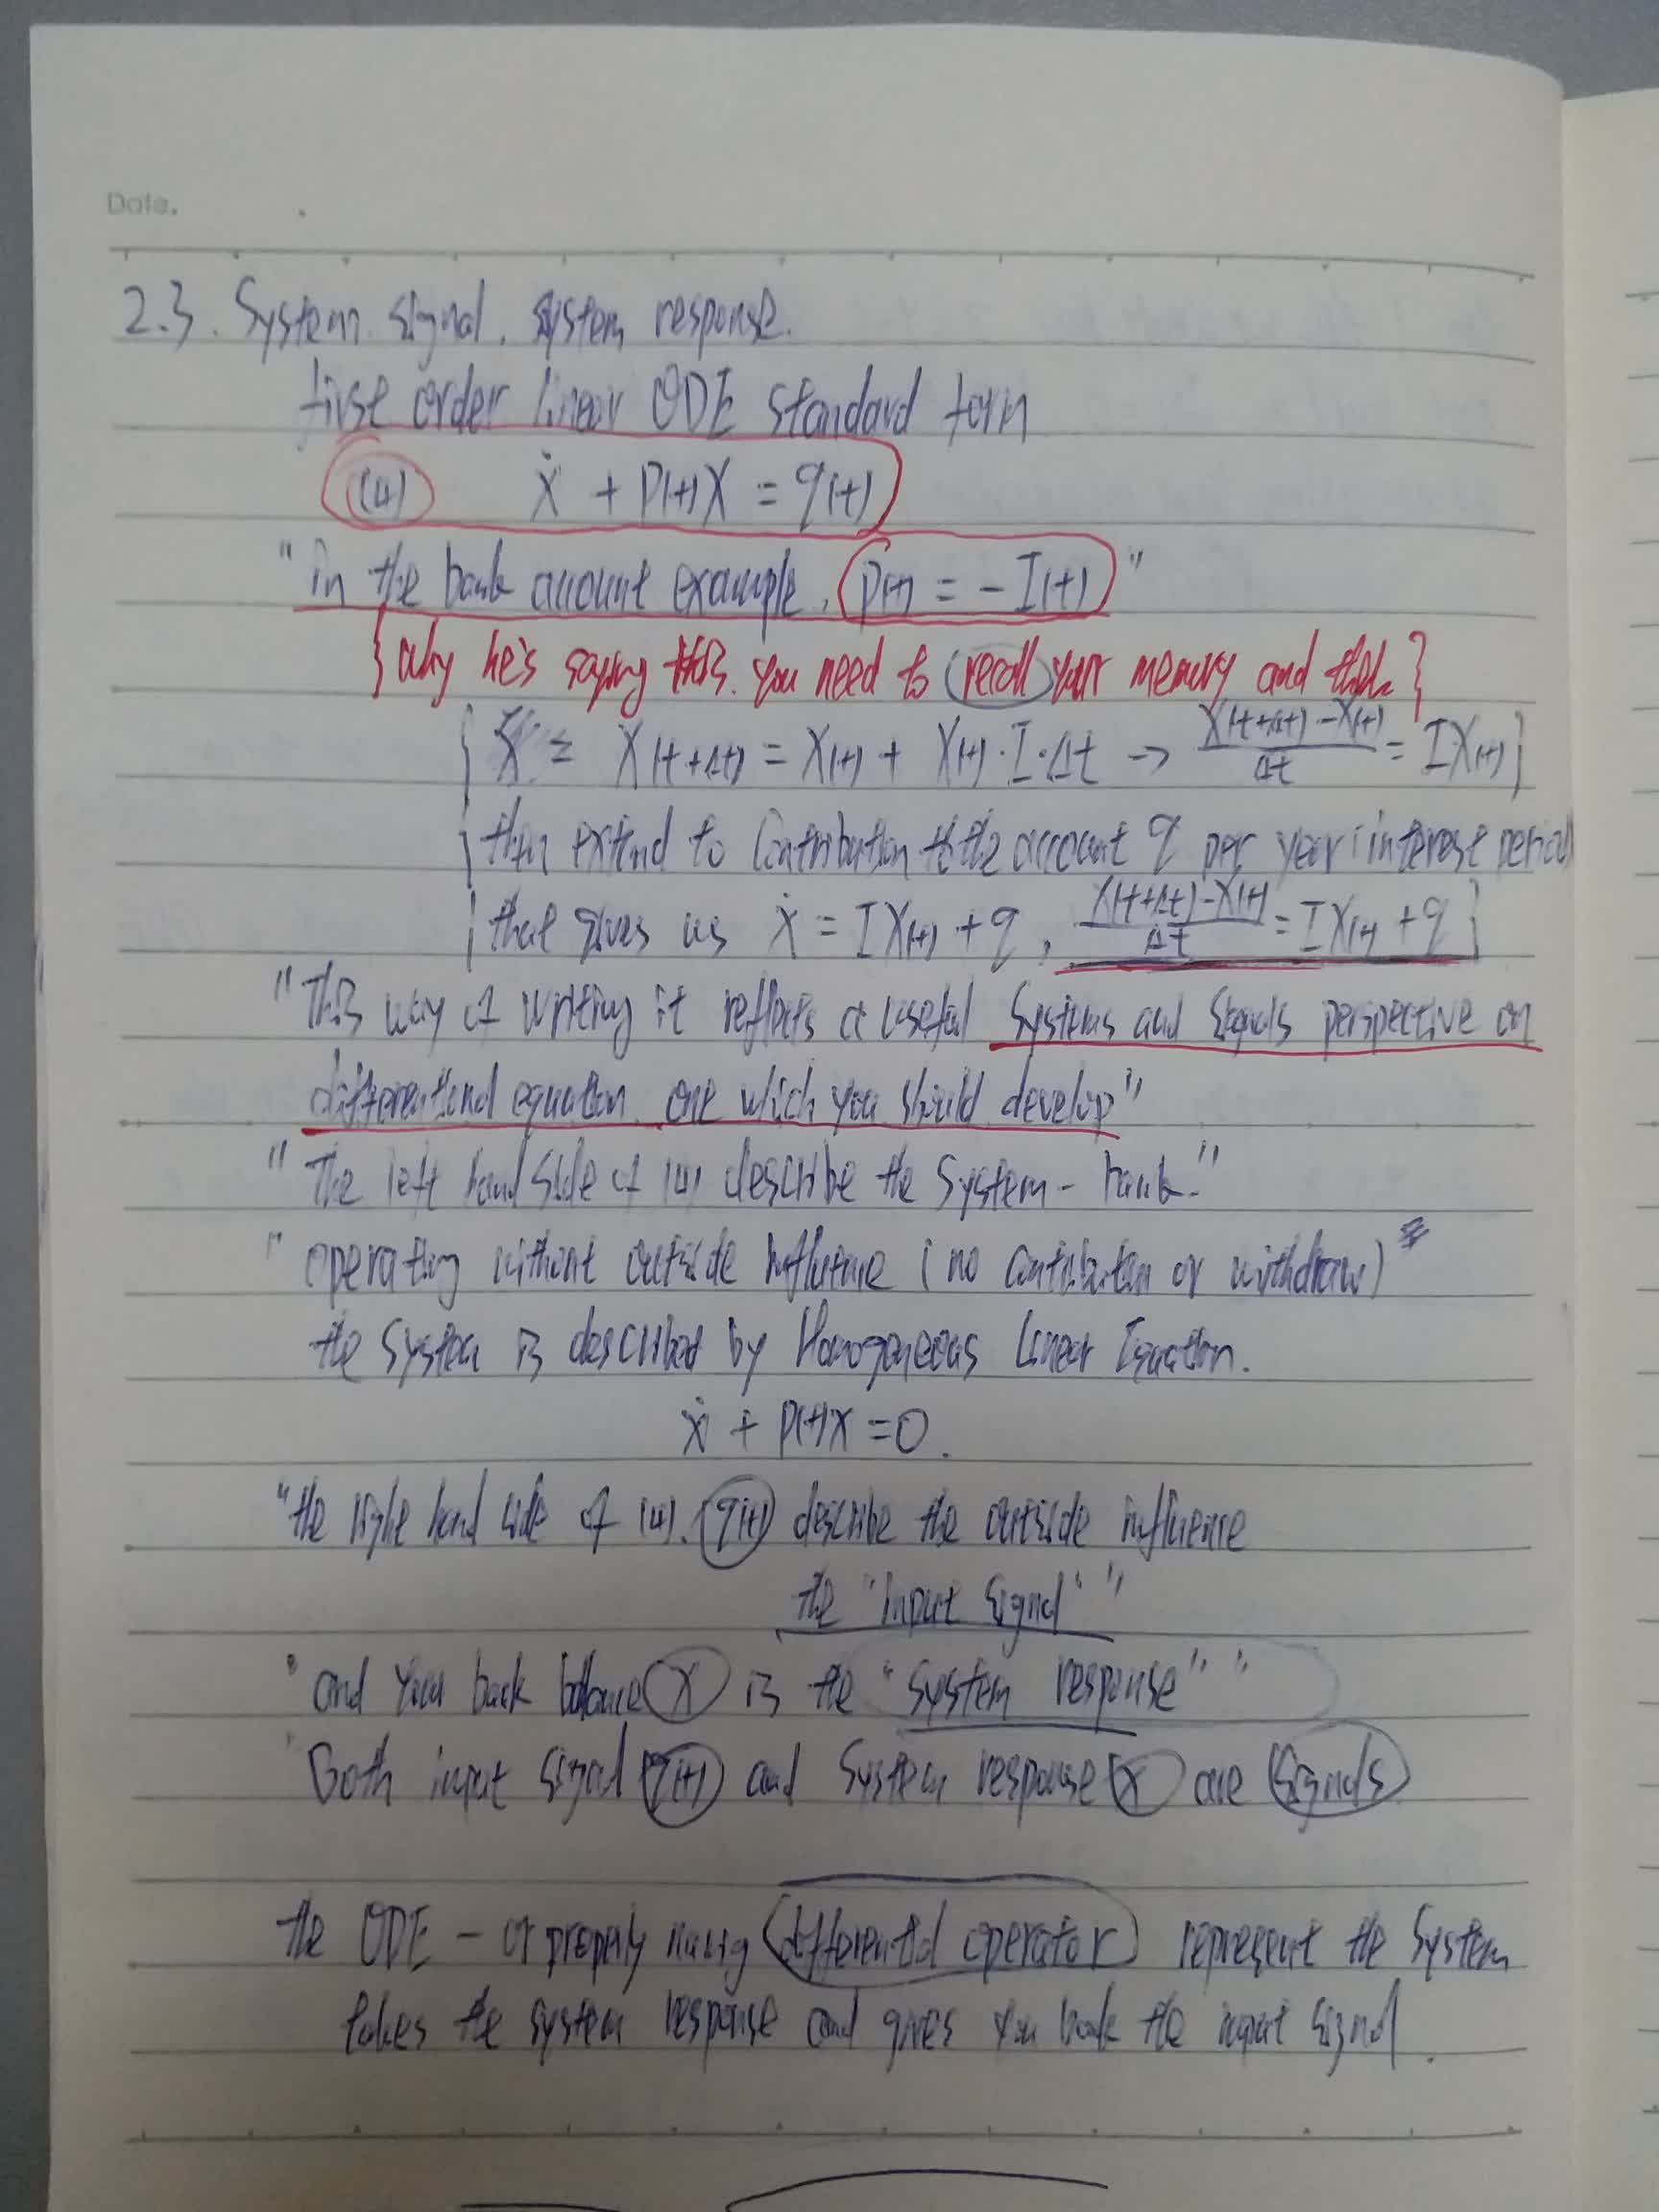 Date.
2.3. System. Signal. System response.
first order linear ODE standard form
(4) ẋ + P(t)X = q(t)
"in the bank account example, P(t) = - I(t)"
{why he's saying this. you need to recall your memory and think}
{ X(t+Δt) = X(t) + X(t)·I·Δt → (X(t+Δt) - X(t))/Δt = IX(t)}
{then extend to contribution to the account q per year (interest period
{that gives us ẋ = IX(t) + q, (X(t+Δt) - X(t))/Δt = IX(t) + q}
"This way of writing it reflects a useful Systems and Signals perspective on
differential equation. one which you should develop"
"The left hand side of (4) describe the System - bank."
"operating without outside influence (no contribution or withdraw)"
the System is described by Homogeneous Linear Equation.
ẋ + P(t)X = 0.
"the right hand side of (4). q(t) describe the outside influence
the "input signal" "
"and your bank balance X is the "System response" "
"Both input signal q(t) and System response X are Signals
the ODE - or properly differential operator represent the System
takes the system response and gives you back the input signal.